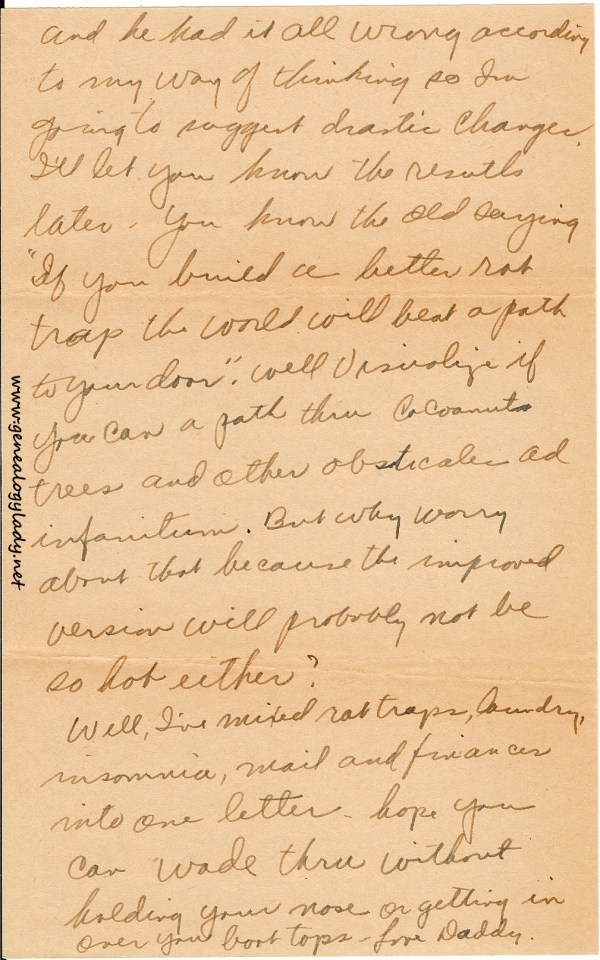 and he had it all wrong according
to my way of thinking so I'm
going to suggest drastic changes.
I'll let you know the results
later - You know the old saying
"If you build a better rat
trap the world will beat a path
to your door". Well Visualize if
you can a path thru Cocoanuts
trees and other obsticales ad
infanitum. But why worry
about that because the improved
version will probably not be
so hot either?
Well, I've mixed rat traps, laundry,
insomnia, mail and finances
into one letter - hope you
can wade thru without
holding your nose or getting in
over your boot tops - Love Daddy.
www.genealogylady.net